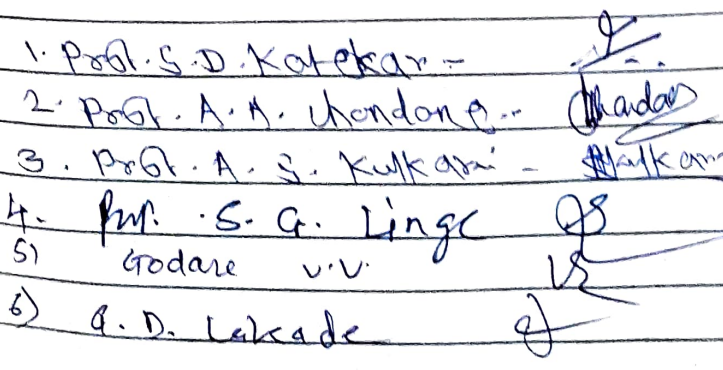 1. Prof. S. D. Katekar -
2. Prof. A. A. Chondane -
3. Prof. A. S. Kulkarni -
4. Prof. S. G. Linge
5) Godare V.V.
6) G. D. Lakade